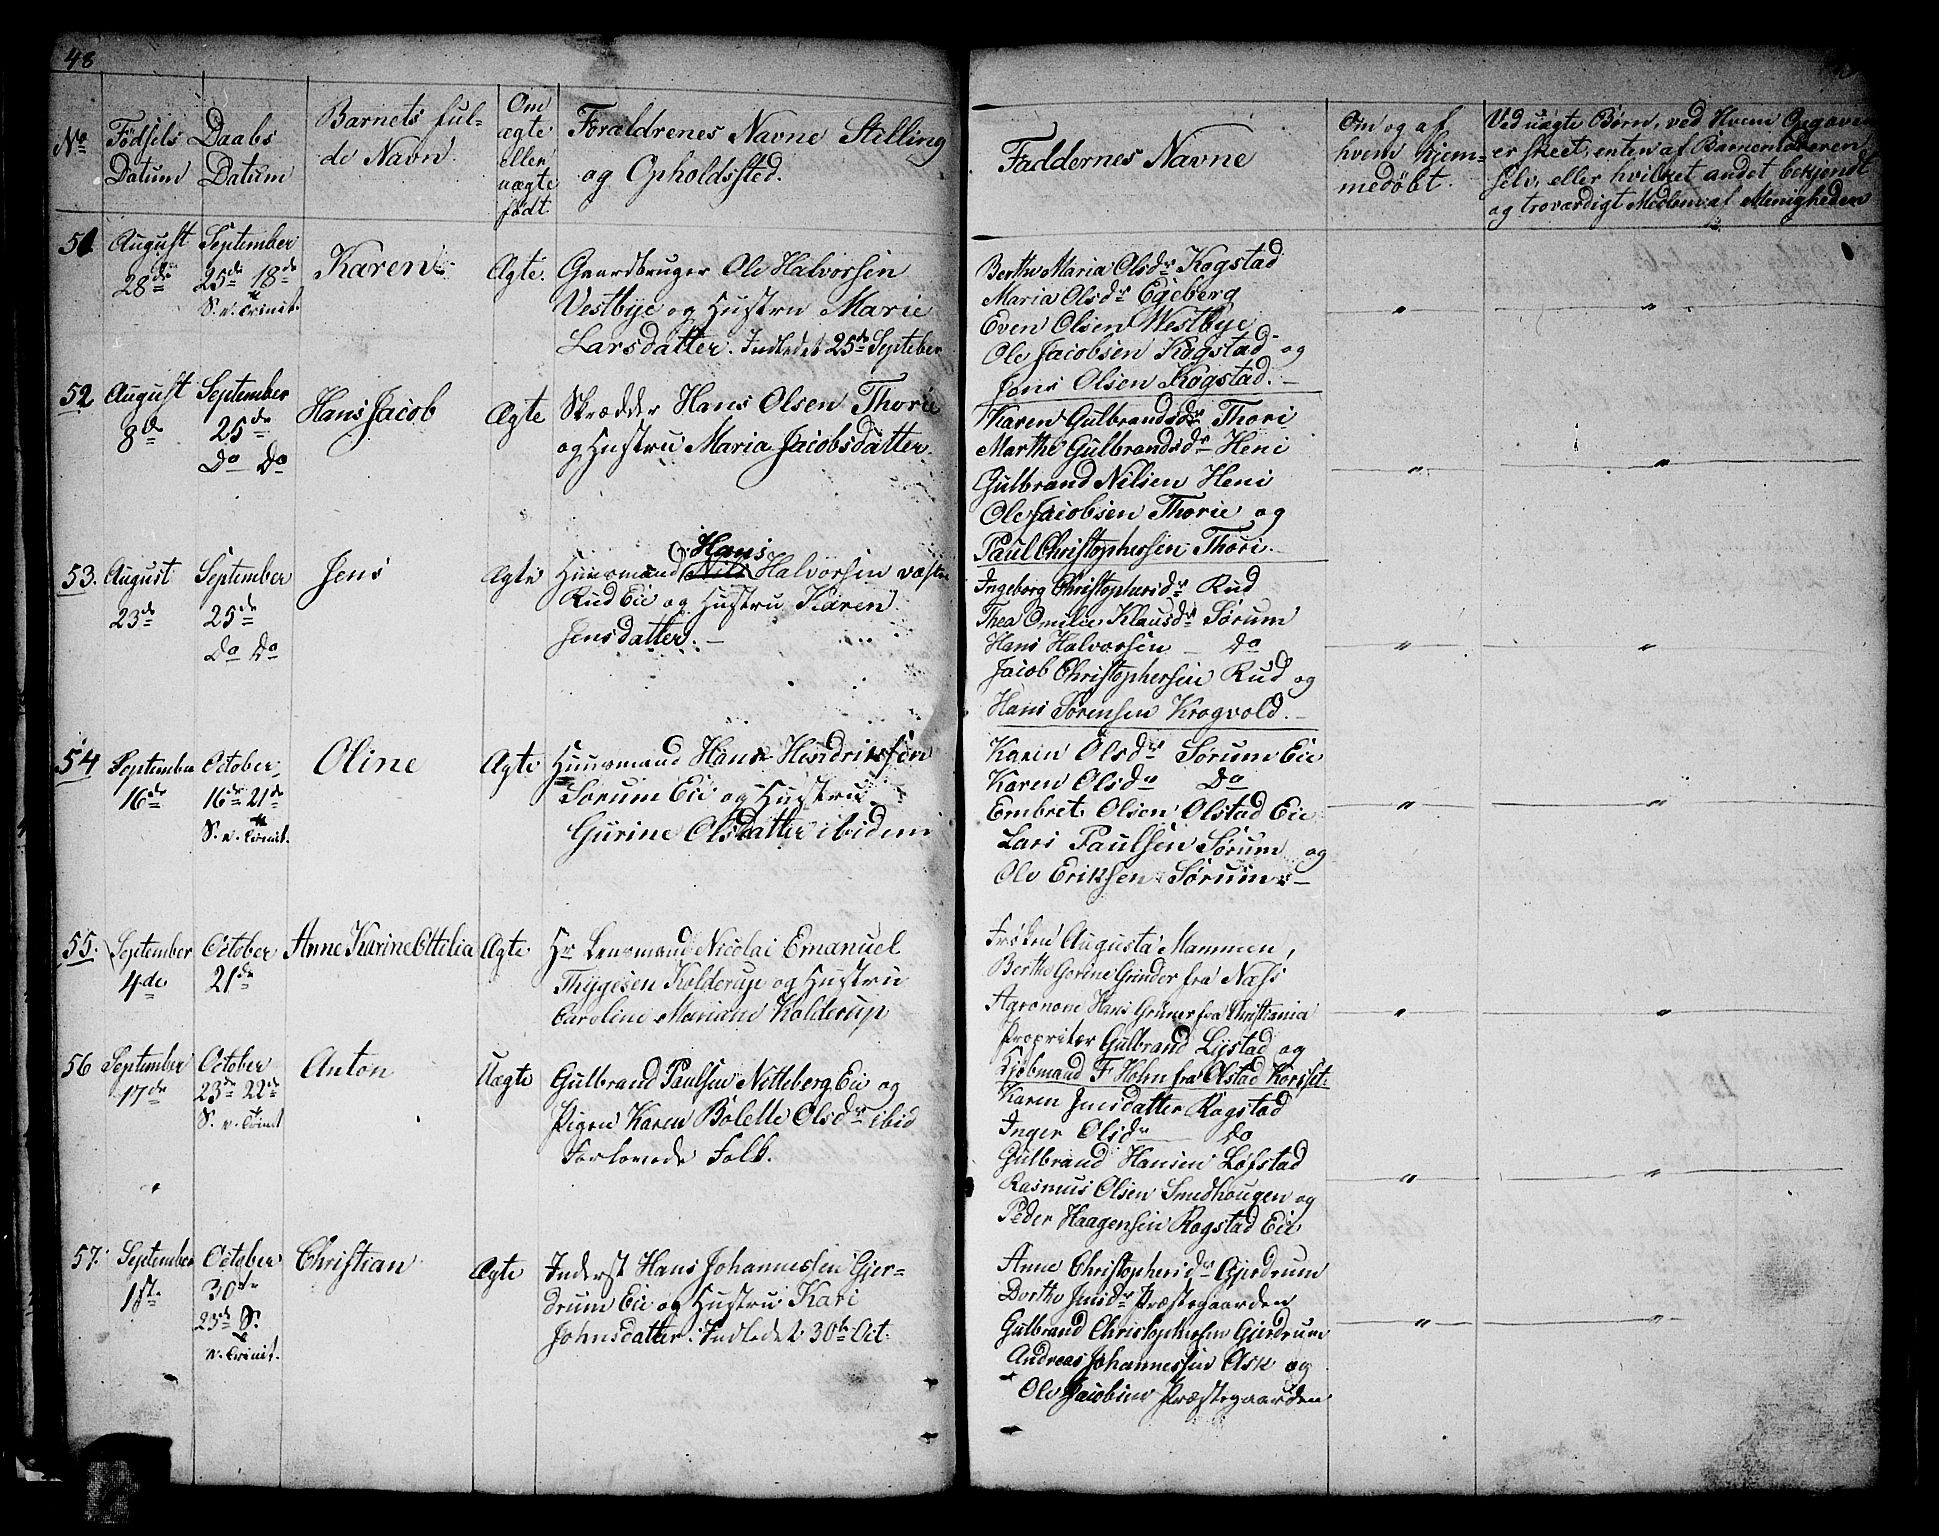 48
No
Födsels
Datum
Daabs
Datum
Barnets ful-
de Navn
Om
ægte
eller
uægte
født
Forældrenes Navne Stilling
og Opholdssted.
Faddernes Navne
Om og af
hvem hjem-
medöbt.
Ved uægte Börn, ved Hvem Opgaven
er skeet, enten af Barnemoderen
selv, eller hvilket andet bekjendt
og troværdigt Medlem af Menigheden
51
August
28de
September
25de 18de
S. e. Trinit.
Karen
Ægte.
Gaardbruger Ole Halvorsen
Vestbye og Hustru Marie
Larsdatter. Indledet 25de Septeber
Berthe Maria Olsdr Kogstad
Maria Olsdr Egeberg
Even Olsen Westbye
Ole Jacobsen Kogstad og
Jens Olsen Kogstad.
52
August
8de
September
25de
Do Do
Hans Jacob
Ægte
Skrædder Hans Olsen Thorie
og Hustru Maria Jacobsdatter.
Karen Gulbrandsdr Thori
Marthe Gulbrandsdr Heni
Gulbrand Nilsen Heni
Ole Jacobsen Thorie og
Paul Christophersen Thori.
53.
August
23de
September
25de
Do Do
Jens
Ægte
Hans
Huusmand Nils Halvorsen væstre
Rud Eie og Hustru Karen
Jensdatter.
Ingeborg Christophersdr Rud
Thea Emilie Klausdr Sørum
Hans Halvorsen - Do
Jacob Christophersen Rud og
Hans Sørensen Krogvold.
54
September
16de
October
16de 21de
S. e. Trinit.
Oline
Ægte
Huusmand Hans Hendriksen
Sørum Eie og Hustru
Gurine Olsdatter ibidem
Karen Olsdr Sørum Eie
Karen Olsdr Do
Embret Olsen Olstad Eie
Lars Paulsen Sørum og
Ole Eriksen Sørum
55.
September
4de
October
21de
Anne Karine Ottilia
Ægte
Hr Lensmand Nicolai Emanuel
Thygesen Kolderup og Hustru
Caroline Mariane Kolderup
Frøken Augusta Mammen,
Berthe Gorine Grinder fra Næss
Agronom Hans Grüner fra Christiania
Proprietær Gulbrand Lystad og
Kjöbmand F Hohn fra Olstad Korsset.
56
September
17de
October
23de 22de
S. e. Trinit
Anton
Uægte
Gulbrand Paulsen Nitteberg Eie og
Pigen Karen Bolette Olsdr ibid
Forlovede Folk.
Karen Jensdatter Rogstad
Inger Olsdr Do
Gulbrand Hansen Løfstad
Rasmus Olsen Smedhougen og
Peder Haagensen Rogstad Eie
57.
September
1ste
October
30te
23de S.
e. Trinit.
Christian
Ægte
Inderst Hans Johannessen Gjer-
drum Eie og Hustru Kari
Johnsdatter. Indledet 30te Oct.
Anne Christophersdr Gjerdrum
Dorthe Jensdr Præstegaarden
Gulbrand Christophersen Gjerdrum
Andreas Johannessen Ask og
Ole Jacobsen Præstegaarden